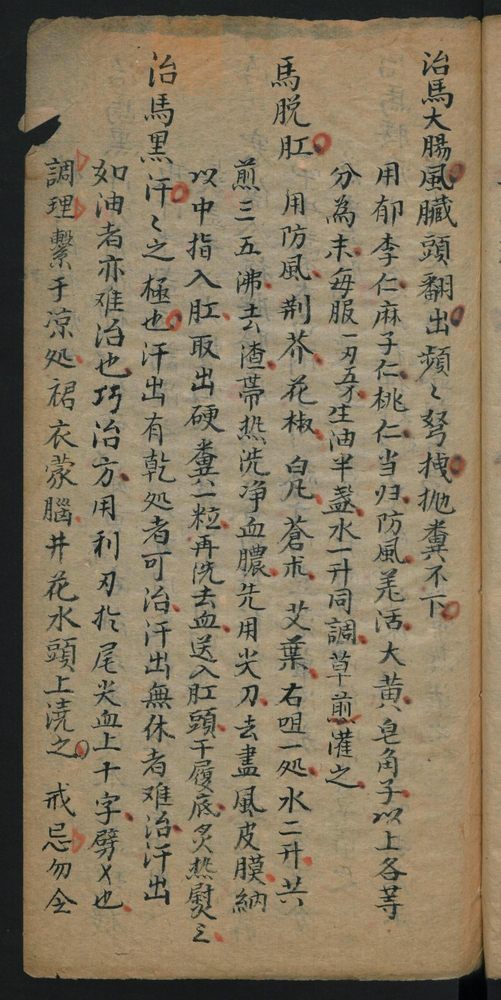 治馬大腸風臓頭翻出頻〻弩拽抛糞不下
用郁李仁麻子仁桃仁当归防風羌活大黄皂角子以上各等
分為末每服一刄五才生油半盞水一升同調草前灌之
馬脱肛 用防風荆芥花椒白凡蒼朮艾葉右咀一処水二升共
煎三五沸去渣蒂热洗净血膿先用尖刀去盡風皮膜納
以中指入肛取出硬糞六粒再洗去血送入肛頭干履底炙热熨之
治馬黒汗〻之極也汗出有乾処者可治汗出無休者难治汗出
如油者亦难治也巧治方用利刃扵尾尖血上十字劈乂也
調理繫于凉処裙衣蒙腦井花水頭上澆之 戒忌勿令